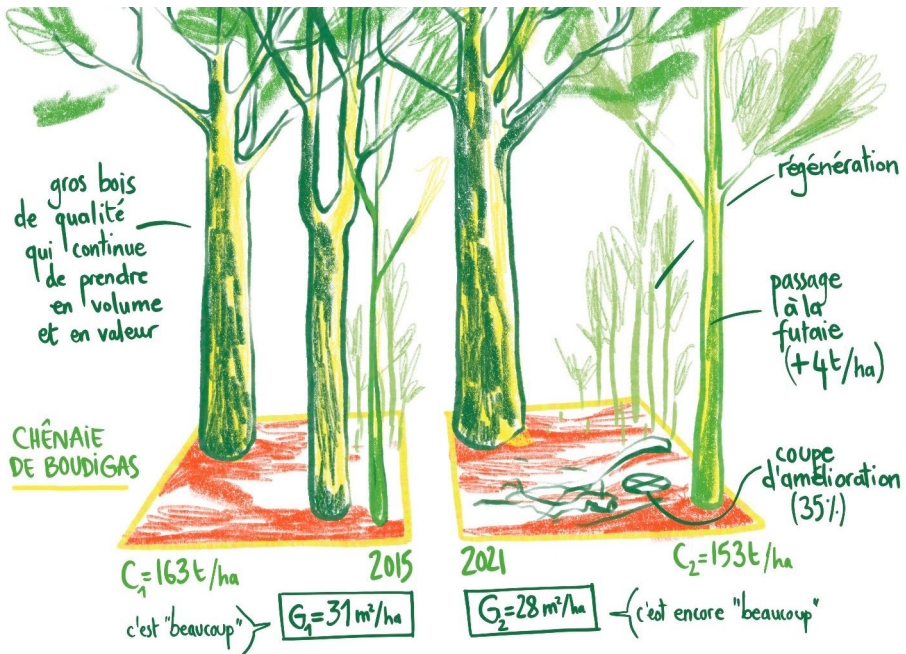 gros bois
de qualité
qui continue
de prendre
en volume
et en valeur
CHÊNAIE
DE BOUDIGAS
régénération
passage
à la
futaie
(+4t/ha)
coupe
d'amélioration
(35%)
C₁=163t/ha
2015
2021
C₂=153t/ha
c'est "beaucoup"
G₁=31 m²/ha
G₂=28 m²/ha
c'est encore "beaucoup"